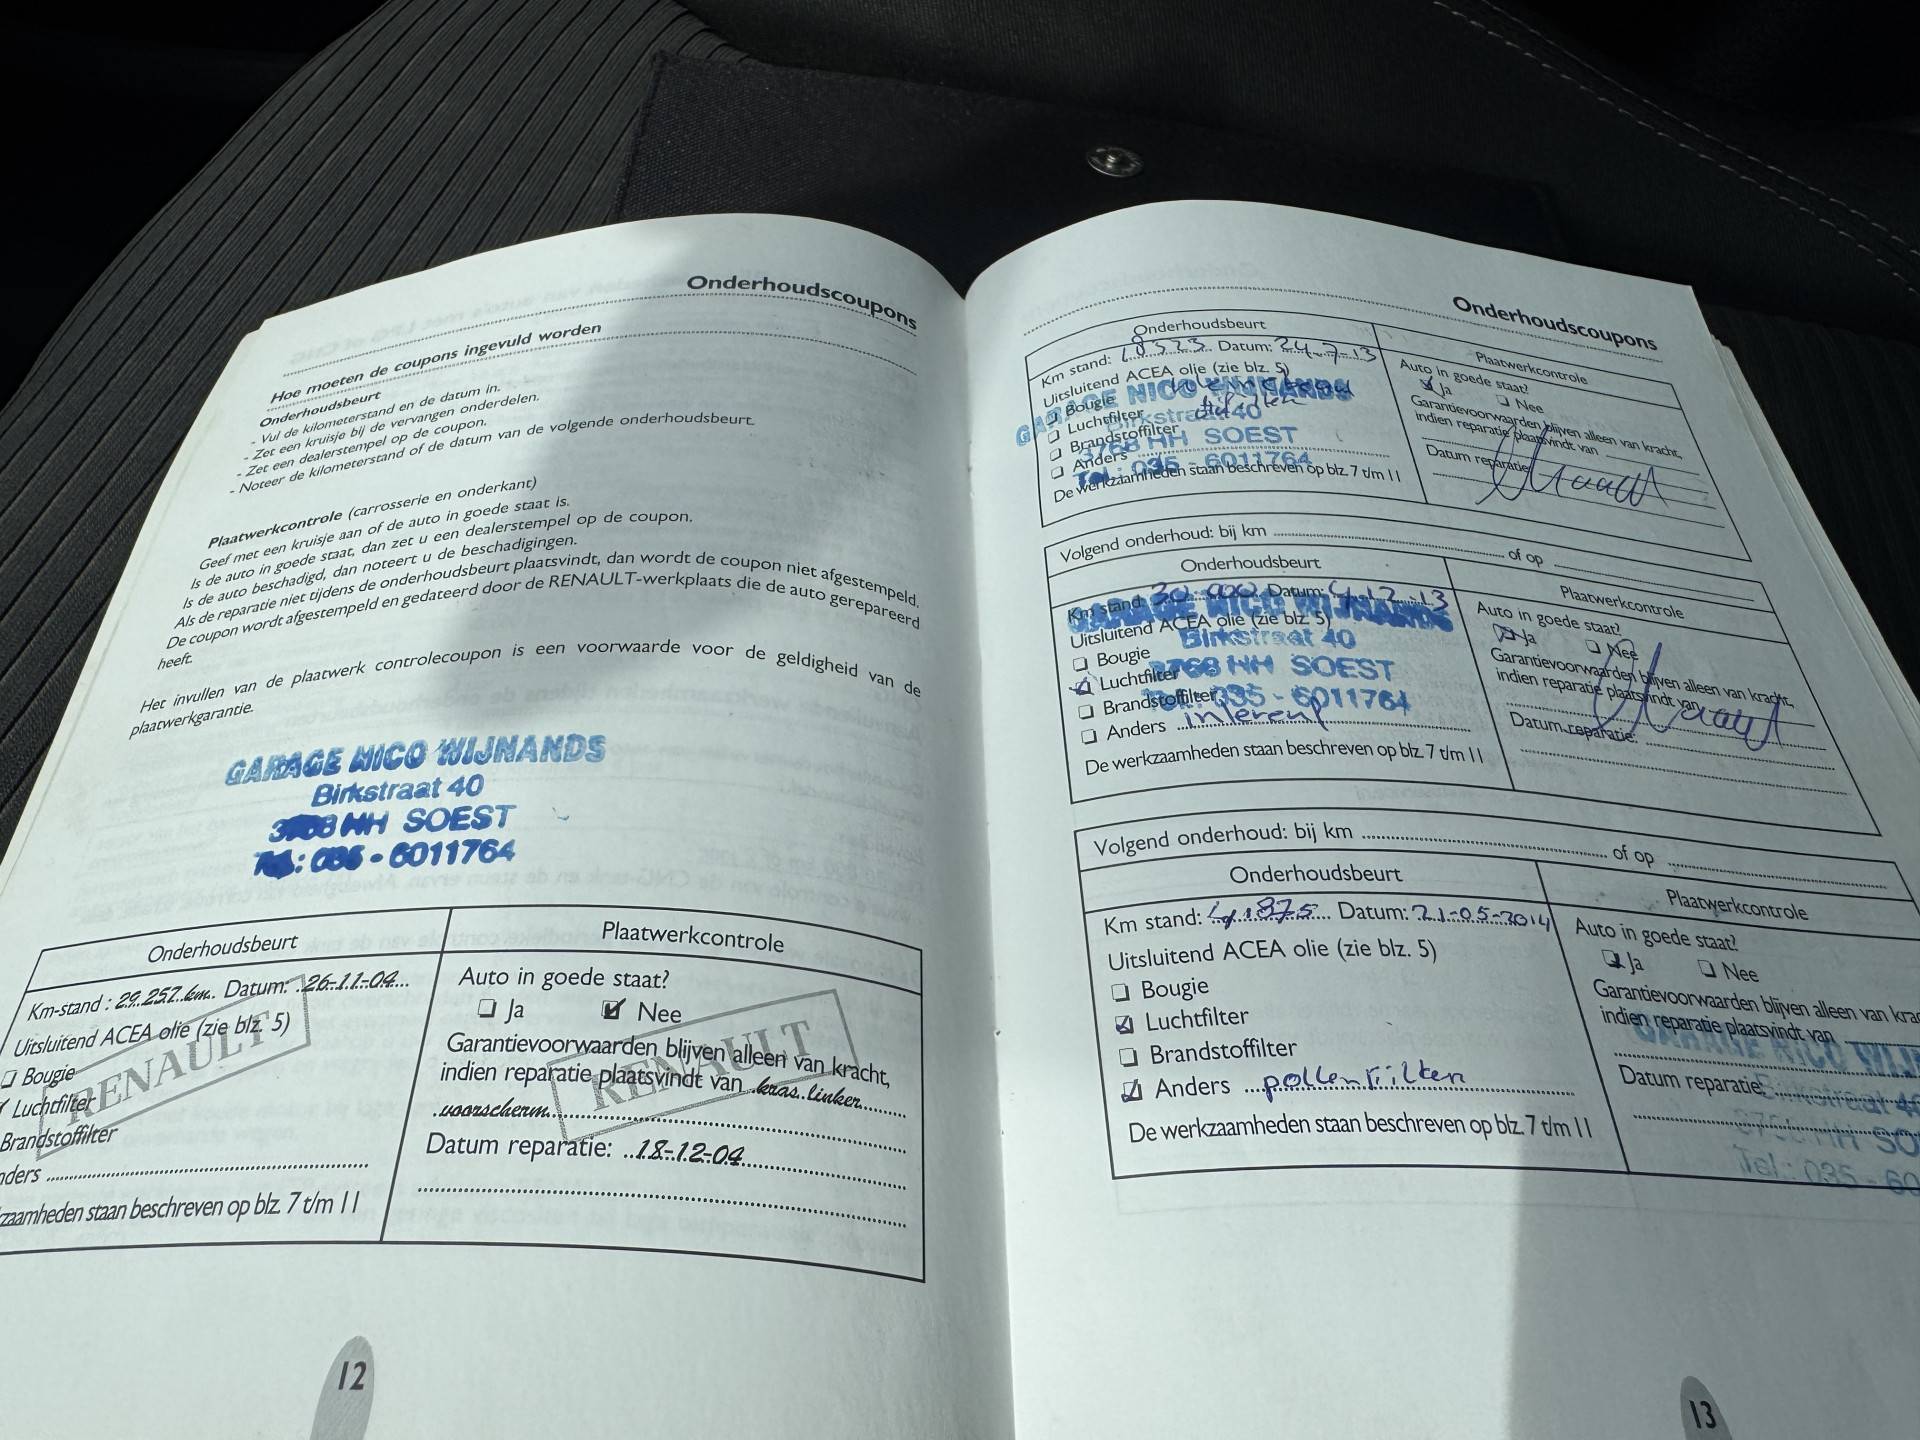 Onderhoudscoupons
Hoe moeten de coupons ingevuld worden
Onderhoudsbeurt
- Vul de kilometerstand en de datum in.
- Zet een kruisje bij de vervangen onderdelen.
- Zet een dealerstempel op de coupon.
- Noteer de kilometerstand of de datum van de volgende onderhoudsbeurt.
Plaatwerkcontrole (carrosserie en onderkant)
Geef met een kruisje aan of de auto in goede staat is.
Is de auto in goede staat, dan zet u een dealerstempel op de coupon.
Is de auto beschadigd, dan noteert u de beschadigingen.
Als de reparatie niet tijdens de onderhoudsbeurt plaatsvindt, dan wordt de coupon niet afgestempeld.
De coupon wordt afgestempeld en gedateerd door de RENAULT-werkplaats die de auto gerepareerd
heeft.
Het invullen van de plaatwerk controlecoupon is een voorwaarde voor de geldigheid van de
plaatwerkgarantie.
GARAGE NICO WIJNANDS
Birkstraat 40
3768 HH SOEST
Tel.: 035 - 6011764
Onderhoudsbeurt
Km-stand : 29.257 km Datum: 26-11-04
Uitsluitend ACEA olie (zie blz. 5)
Bougie
Luchtfilter
Brandstoffilter
nders
zaamheden staan beschreven op blz. 7 t/m 11
RENAULT
Plaatwerkcontrole
Auto in goede staat?
Ja Nee
Garantievoorwaarden blijven alleen van kracht,
indien reparatie plaatsvindt van kras linker
voorscherm
Datum reparatie: 18-12-04
RENAULT
12
Onderhoudscoupons
Onderhoudsbeurt
Km stand: 18323 Datum: 24-7-13
Uitsluitend ACEA olie (zie blz. 5)
Bougie
Luchtfilter
Brandstoffilter
Anders
De werkzaamheden staan beschreven op blz. 7 t/m 11
GARAGE NICO WIJNANDS
Birkstraat 40
3768 HH SOEST
Tel.: 035 - 6011764
Plaatwerkcontrole
Auto in goede staat?
Ja Nee
Garantievoorwaarden blijven alleen van kracht,
indien reparatie plaatsvindt van
Datum reparatie:
Volgend onderhoud: bij km of op
Onderhoudsbeurt
Km stand: 30.000 Datum: 4-12-13
Uitsluitend ACEA olie (zie blz. 5)
Bougie
Luchtfilter
Brandstoffilter
Anders
De werkzaamheden staan beschreven op blz. 7 t/m 11
GARAGE NICO WIJNANDS
Birkstraat 40
3768 HH SOEST
Tel.: 035 - 6011764
Plaatwerkcontrole
Auto in goede staat?
Ja Nee
Garantievoorwaarden blijven alleen van kracht,
indien reparatie plaatsvindt van
Datum reparatie:
Volgend onderhoud: bij km of op
Onderhoudsbeurt
Km stand: 41.875 Datum: 21-05-2014
Uitsluitend ACEA olie (zie blz. 5)
Bougie
Luchtfilter
Brandstoffilter
Anders pollenfilter
De werkzaamheden staan beschreven op blz. 7 t/m 11
Plaatwerkcontrole
Auto in goede staat?
Ja Nee
Garantievoorwaarden blijven alleen van krac
indien reparatie plaatsvindt van
Datum reparatie:
GARAGE NICO WIJ
Birkstraat 40
3768 HH SO
Tel.: 035 - 60
13